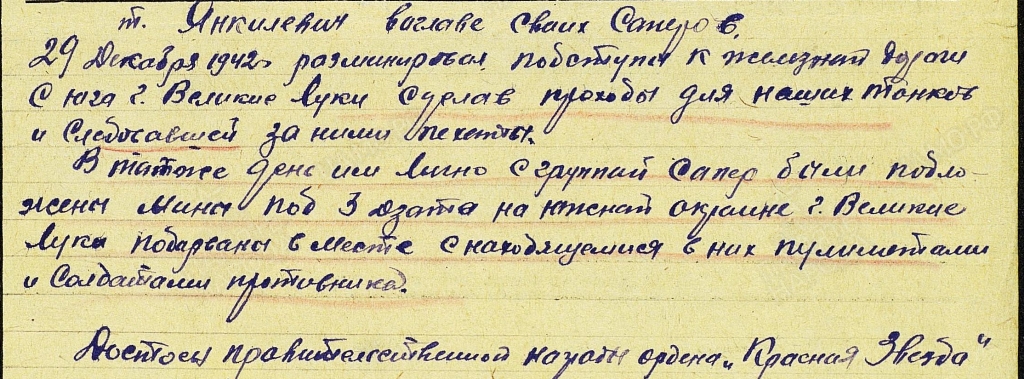 т. Янкилевич воглаве своих Саперов,
29 Декабря 1942г разминировал подступы к железной дороги
с юга г. Великие Луки сделав проходы для наших танков
и Следовавшей за ними пехоты.
В тотоже день им лично с группой сапер были подло-
жены мины под 3 дзота на южной окраине г. Великие
Луки подарваны в месте с находящемися в них пулиметами
и Солдатами противника.
Достоен правительственной награды ордена „Красная Звезда"